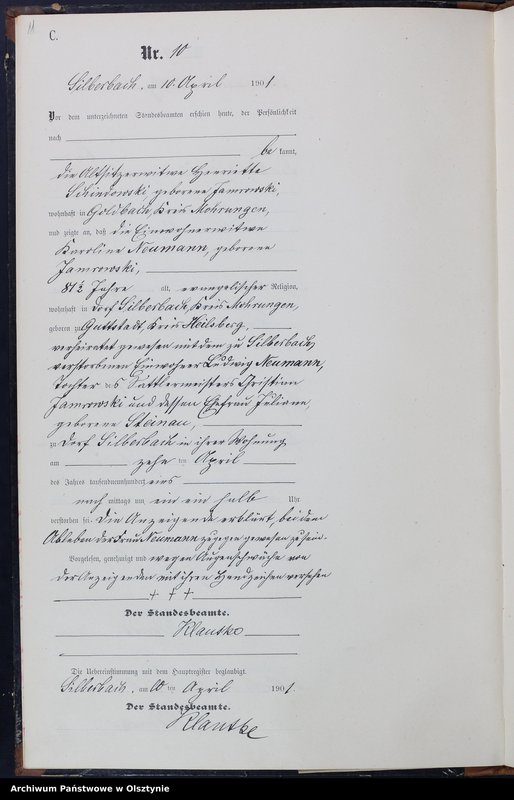 11
C.
Nr. 10
Silberbach, am 10. April 1901.
Vor dem unterzeichneten Standesbeamten erschien heute, der Persönlichkeit
nach
be kannt,
die Altsitzerwitwe Henriette
Schindowski geborene Jamrowski,
wohnhaft in Goldbach, Kreis Mohrungen,
und zeigte an, daß die Einwohnerwitwe
Karoline Neumann, geborene
Jamrowski,
81½ Jahre alt, evangelischer Religion,
wohnhaft in Dorf Silberbach, Kreis Mohrungen,
geboren zu Guttstadt, Kreis Heilsberg,
verheiratet gewesen mit dem zu Silberbach
verstorbenen Einwohner Ludwig Neumann,
Tochter des Sattlermeisters Christian
Jamrowski und dessen Ehefrau Juliane,
geborene Steinau,
zu Dorf Silberbach in ihrer Wohnung
am zehn ten April
des Jahres tausendneunhundert eins
nach mittags um ein ein halb Uhr
verstorben sei. Die Anzeigende erklärt, bei dem
Ableben der Frau Neumann zugegen gewesen zu sein.
Vorgelesen, genehmigt und wegen Augenschwäche von
der Anzeigenden mit ihren Handzeichen versehen
+ + +
Der Standesbeamte.
Klautke
Die Uebereinstimmung mit dem Hauptregister beglaubigt.
Silberbach, am 10 ten April 1901.
Der Standesbeamte.
Klautke
Archiwum Państwowe w Olsztynie